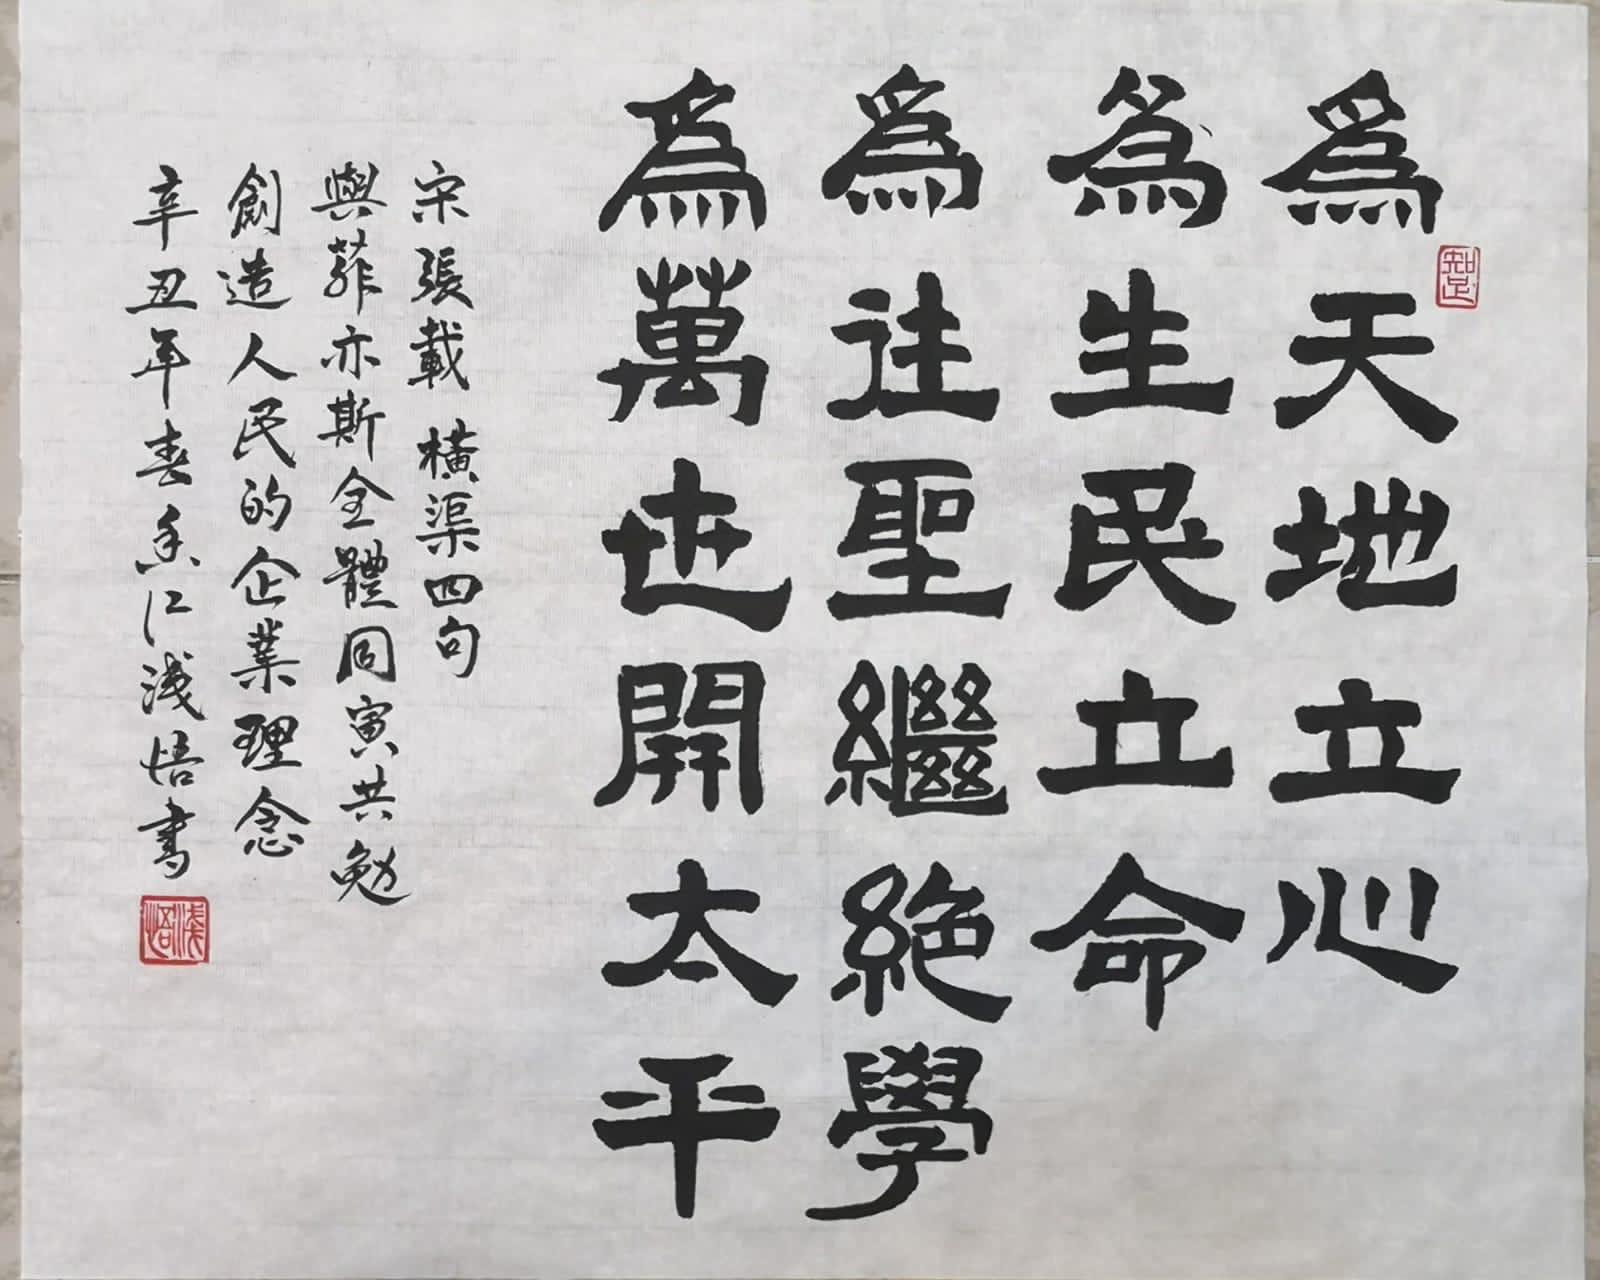 爲天地立心
爲生民立命
爲往聖繼絶學
爲萬世開太平
宋張載橫渠四句
與菲亦斯全體同寅共勉
創造人民的企業理念
辛丑年春香江淺悟書
知足
淺悟